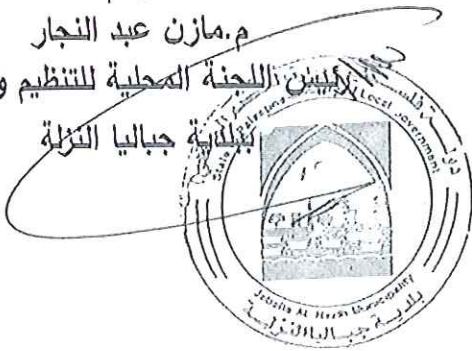 م.مازن عبد النجار
رئيس اللجنة المحلية للتنظيم و
ببلدية جباليا النزلة
دولة فلسطين
State of Palestine
Local Government
Jabalia Al Nazla Municipality
بلدية جباليا النزلة